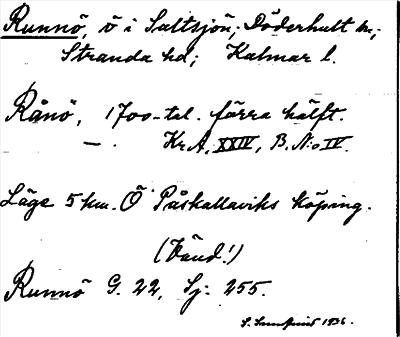 Runnö, ö i Saltsjön; Döderhult sn;
Stranda hd; Kalmar l.
Rånö, 1700-tal. förra hälft.
— . Kr.A. XXIV, B. N:o IV.
Läge 5 km. Ö Påskallaviks köping.
(Vänd!)
Runnö G. 22, Sj: 255.
1936.